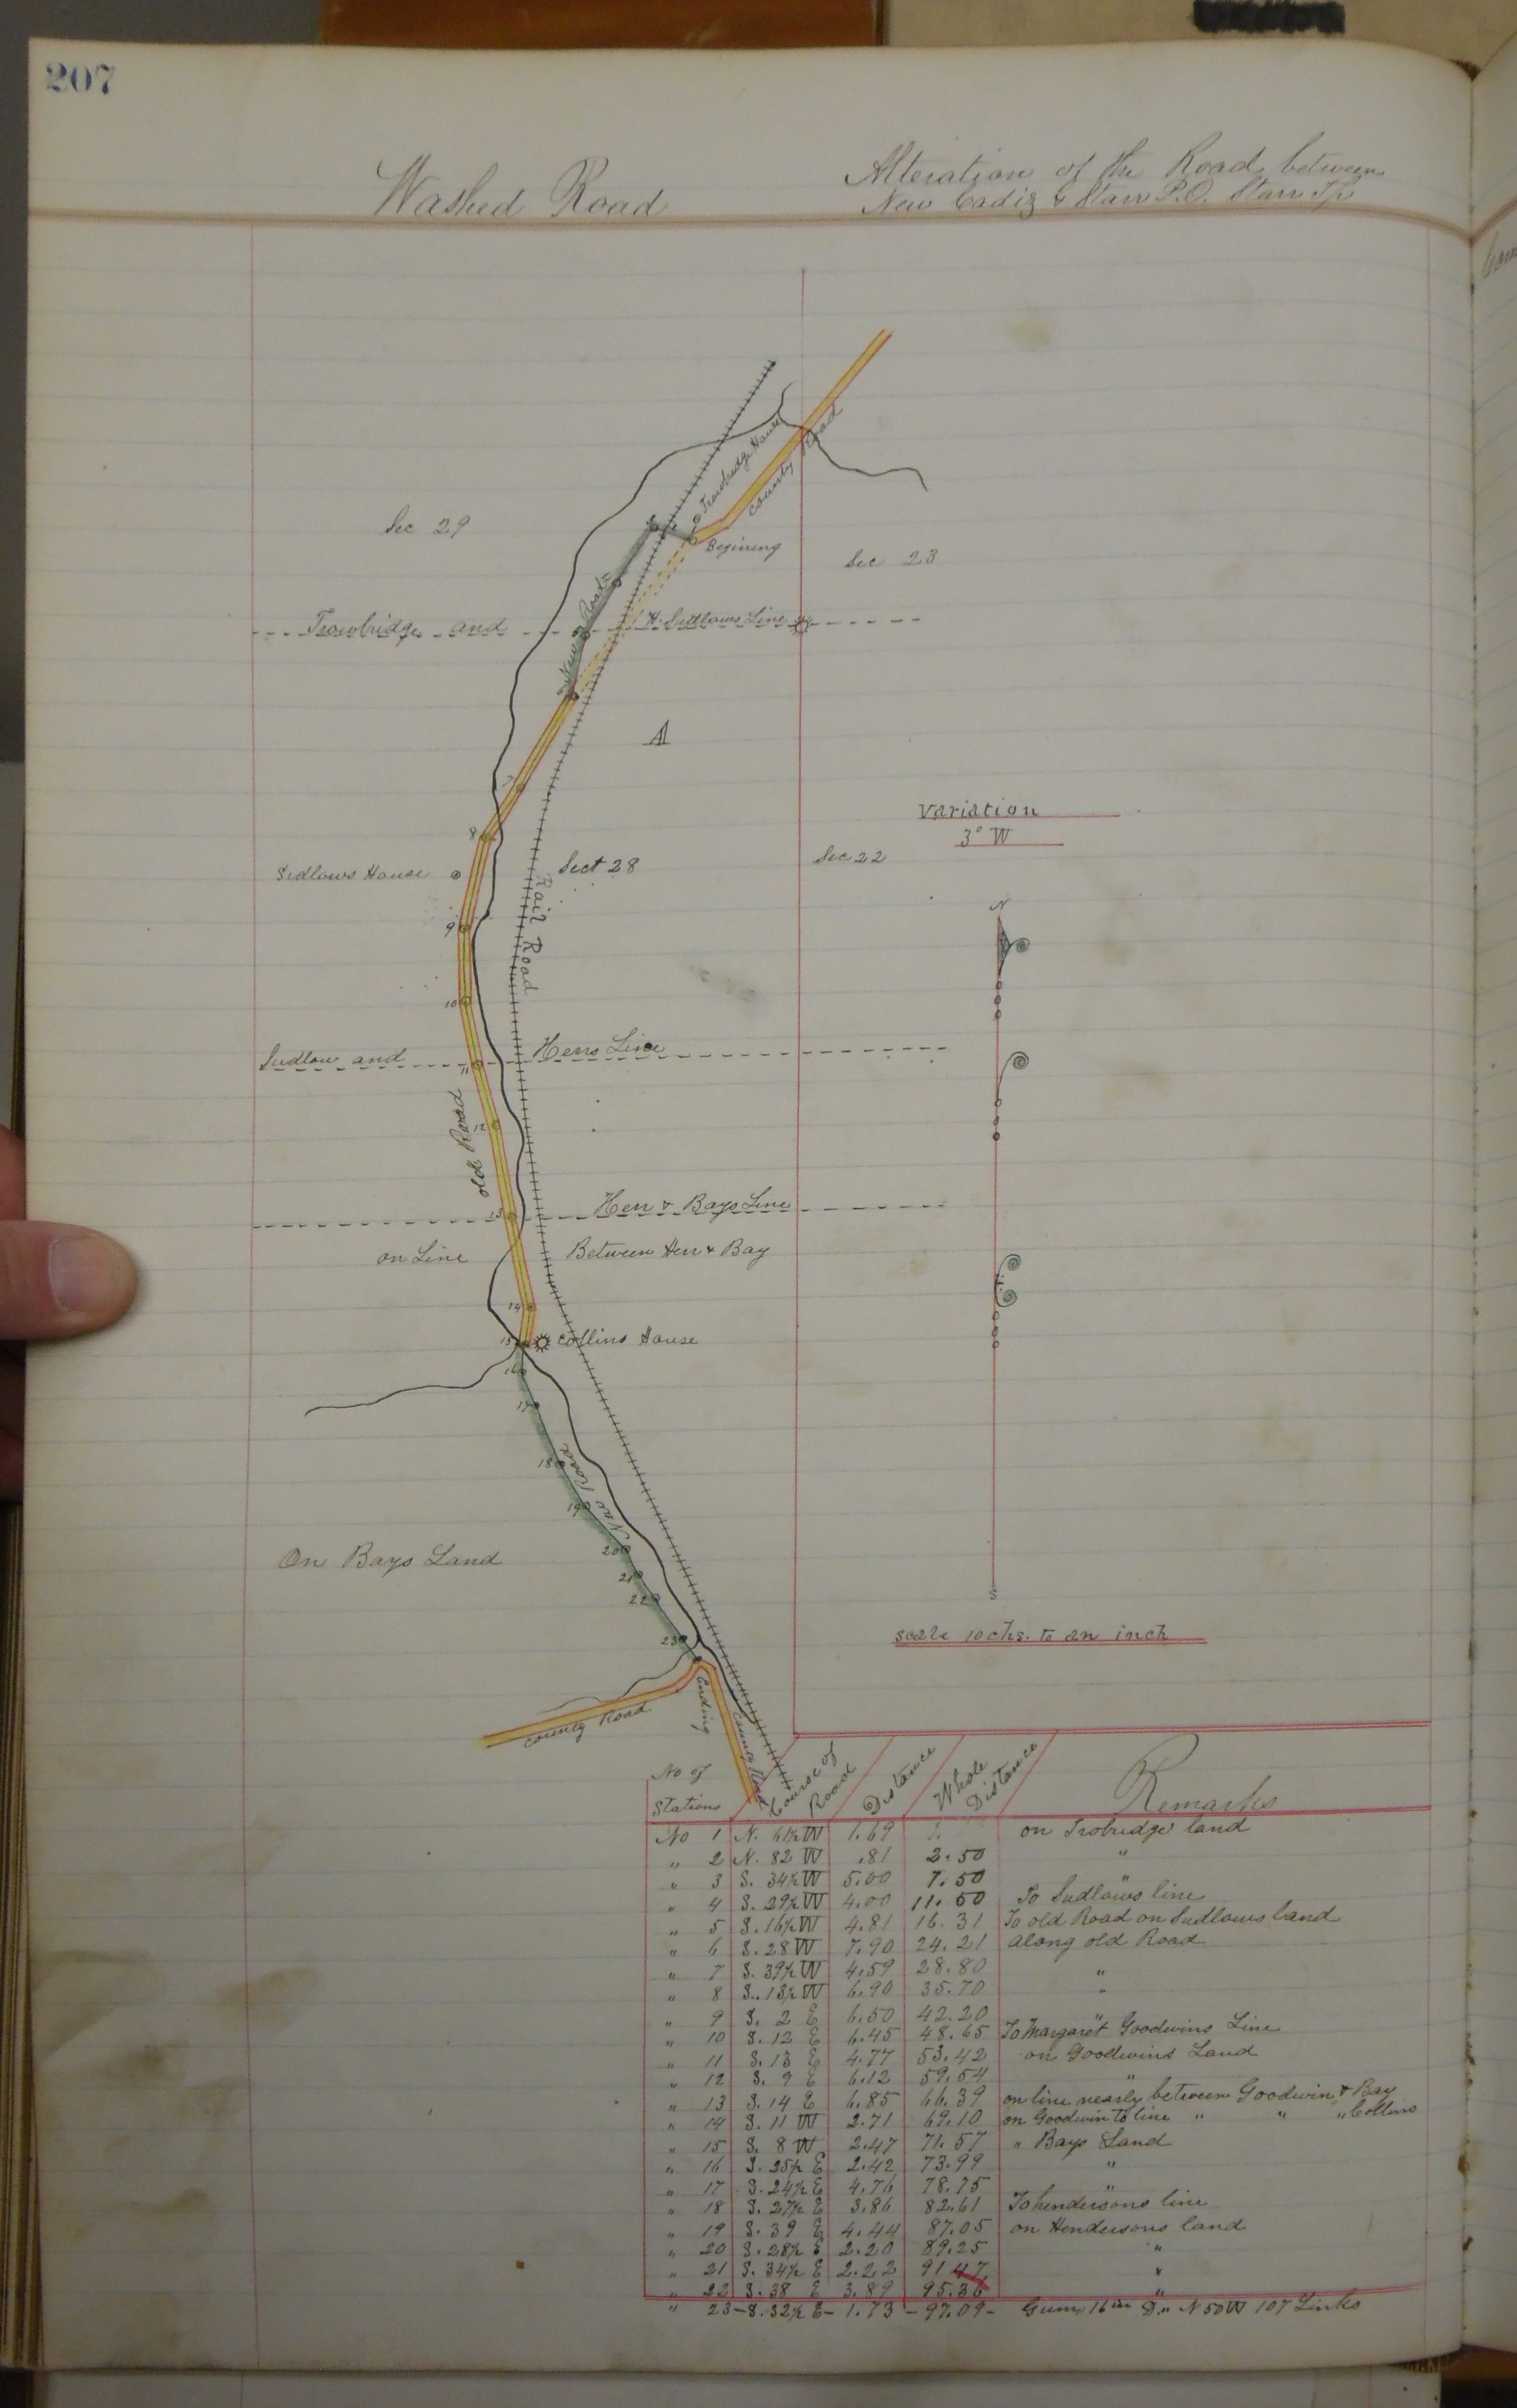 207
Washed Road
Alteration of the Road between
New Cadiz & Starr P.O. Starr Tp
Trowbridge House
County Road
Begining
Sec 29
Sec 23
New Road
Trowbridge and H. Sudlows Line
A
7
8
Variation
3° W
Sudlows House
Sect 28
Sec 22
Rail Road
9
N
10
Sudlow and Herrs Line
11
old Road
12
Herr & Bays Line
13
on Line Between Herr & Bay
14
15 Collins House
16
17
18
New Road
19
On Bays Land
20
21
22
S
23
scale 10 chs. to an inch
Ending
County Road
County Road
No of Stations Course of Road Distance Whole Distance Remarks
No 1 N. 61½ W 1.69 1. on Trobridge land
" 2 N. 82 W .81 2.50 "
" 3 S. 34½ W 5.00 7.50 "
" 4 S. 29½ W 4.00 11.50 To Sudlows line
" 5 S. 16½ W 4.81 16.31 To old Road on Sudlows land
" 6 S. 28 W 7.90 24.21 along old Road
" 7 S. 39½ W 4.59 28.80 "
" 8 S. 13½ W 6.90 35.70 "
" 9 S. 2 E 6.50 42.20 "
" 10 S. 12 E 6.45 48.65 To Margaret Goodwins Line
" 11 S. 13 E 4.77 53.42 on Goodwins Land
" 12 S. 9 E 6.12 59.54 "
" 13 S. 14 E 6.85 66.39 on line nearly between Goodwin & Bay
" 14 S. 11 W 2.71 69.10 on Goodwin to line " " " Collins
" 15 S. 8 W 2.47 71.57 " Bays Land
" 16 S. 25½ E 2.42 73.99 "
" 17 S. 24½ E 4.76 78.75 "
" 18 S. 27½ E 3.86 82.61 To hendersons line
" 19 S. 39 E 4.44 87.05 on Hendersons land
" 20 S. 28½ E 2.20 89.25 "
" 21 S. 34½ E 2.22 91.47 "
" 22 S. 38 E 3.89 95.36 "
" 23 - S. 32½ E - 1.73 - 97.09 - Gum 16 in D. " N 50 W 107 Links